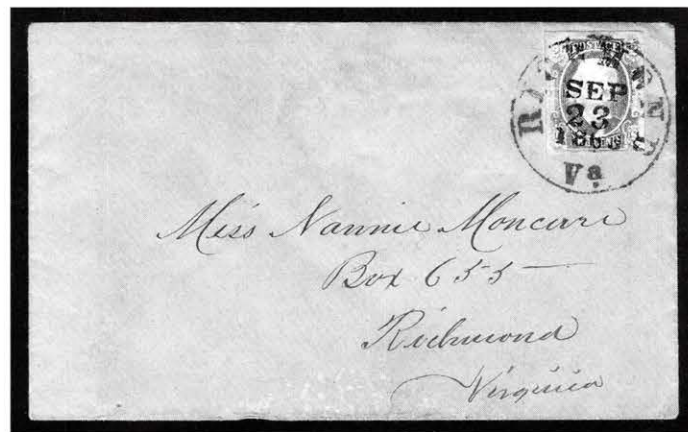 RICHMOND
SEP
23
186
Va.
Miss Nannie Moncure
Box 655
Richmond
Virginia